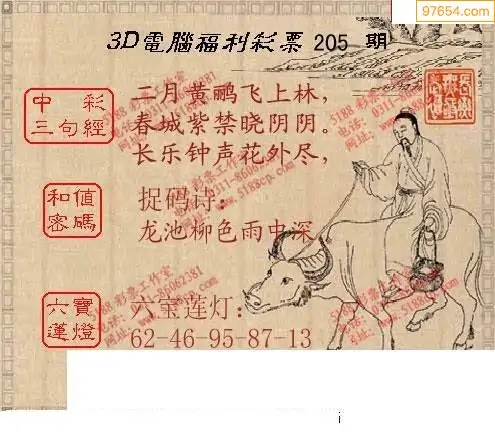 97654.com
3D電腦福利彩票 205 期
中彩
三句經
二月黄鹂飞上林，
春城紫禁晓阴阴。
长乐钟声花外尽，
和值
密碼
捉码诗：
龙池柳色雨中深
六寶
蓮燈
六宝莲灯：
62-46-95-87-13
5188 彩票工作室
电话：0311-86062381
网址：www.5188cp.com